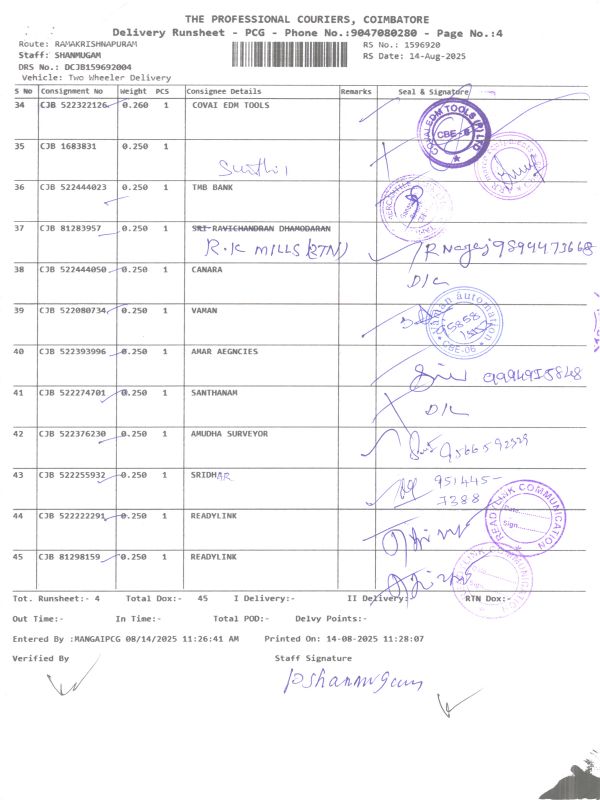 THE PROFESSIONAL COURIERS, COIMBATORE
Delivery Runsheet - PCG - Phone No.:9047080280 - Page No.:4
Route: RAMAKRISHNAPURAM RS No.: 1596920
Staff: SHANMUGAM RS Date: 14-Aug-2025
DRS No.: DCJB159692004
Vehicle: Two Wheeler Delivery
S No Consignment No Weight PCS Consignee Details Remarks Seal & Signature
34 CJB 522322126 0.260 1 COVAI EDM TOOLS COVAI EDM TOOLS (P) LTD CBE-6
35 CJB 1683831 0.250 1
36 CJB 522444023 0.250 1 TMB BANK
37 CJB 81283957 0.250 1 SRI RAVICHANDRAN DHAMODARAN
R.K MILLS (RTN) R Nagaj 9894473668
38 CJB 522444050 0.250 1 CANARA
D/L
39 CJB 522080734 0.250 1 VAMAN Vaman automation 95858 CBE-06
40 CJB 522393996 0.250 1 AMAR AEGNCIES
9994915848
41 CJB 522274701 0.250 1 SANTHANAM
D/L
42 CJB 522376230 0.250 1 AMUDHA SURVEYOR
9566592329
43 CJB 522255932 0.250 1 SRIDHAR 951445-
7388
44 CJB 522222291 0.250 1 READYLINK READYLINK COMMUNICATION Date Sign
45 CJB 81298159 0.250 1 READYLINK COMMUNICATION
Tot. Runsheet:- 4 Total Dox:- 45 I Delivery:- II Delivery: RTN Dox:-
Out Time:- In Time:- Total POD:- Delvy Points:-
Entered By :MANGAIPCG 08/14/2025 11:26:41 AM Printed On: 14-08-2025 11:28:07
Verified By Staff Signature
Pshanmugam